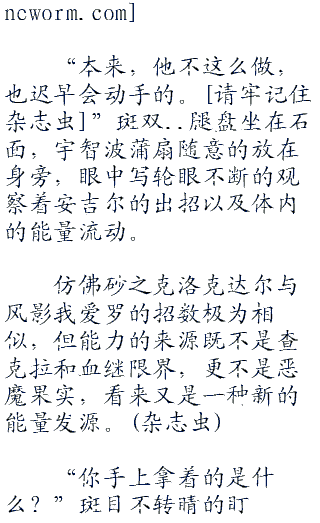 ncworm.com]
“本来，他不这么做，
也迟早会动手的。[请牢记住
杂志虫]”斑双..腿盘坐在石
面，宇智波蒲扇随意的放在
身旁，眼中写轮眼不断的观
察着安吉尔的出招以及体内
的能量流动。
仿佛砂之克洛克达尔与
风影我爱罗的招数极为相
似，但能力的来源既不是查
克拉和血继限界，更不是恶
魔果实，看来又是一种新的
能量发源。(杂志虫)
“你手上拿着的是什
么？”斑目不转睛的盯